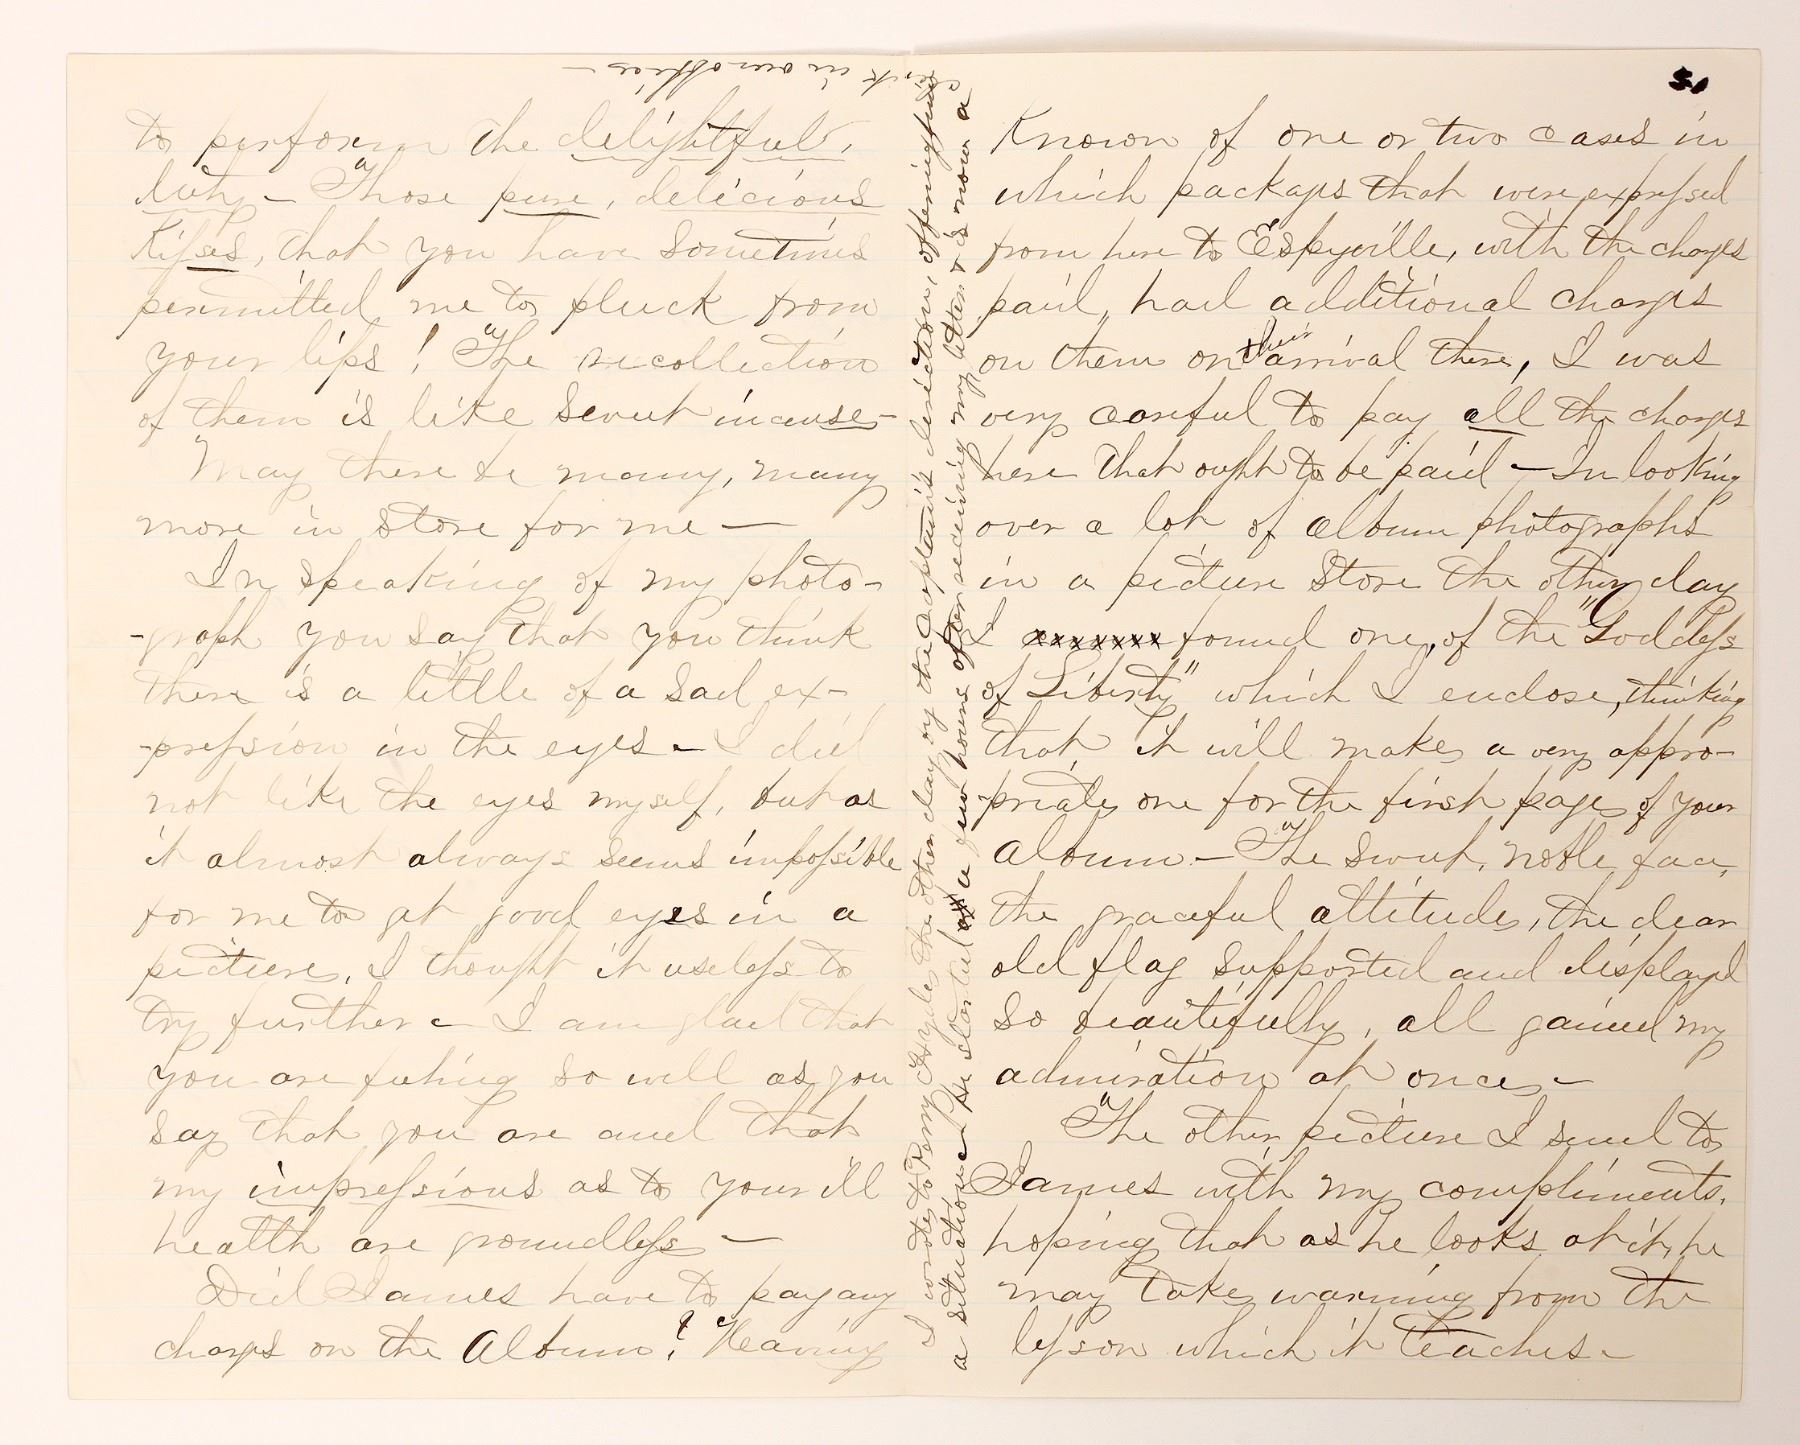 to perform the delightful
duty – Those pure, delicious
Kisses, that you have sometimes
permitted me to pluck from
your lips! The recollection
of them is like sweet incense –
May there be many, many
more in store for me —
In speaking of my photo-
-graph you say that you think
there is a little of a sad ex-
-pression in the eyes – I did
not like the eyes myself, but as
it almost always seems impossible
for me to get good eyes in a
picture, I thought it useless to
try further – I am glad that
you are feeling so well as you
say that you are and that
my impressions as to your ill
health are groundless —
Did James have to pay any
charges on the Album? Having
I wrote to Perry the other day by the Captain's direction, offering him
a situation – he started a few hours after receiving my letter & is now a
clerk in our office –
51
Known of one or two cases in
which packages that were expressed
from here to Espyville, with the charges
paid, had additional charges
on them on their arrival there, I was
very careful to pay all the charges
here that ought to be paid – In looking
over a lot of album photographs
in a picture store the other day
I found one, of the "Goddess
of Liberty" which I enclose, thinking
that it will make a very appro-
priate one for the first page of your
Album – The sweet, noble face,
the graceful attitude, the dear
old flag supported and displayed
so beautifully, all gained my
admiration at once –
The other picture I send to
James with my compliments,
hoping that as he looks at it, he
may take warning from the
lesson which it teaches –